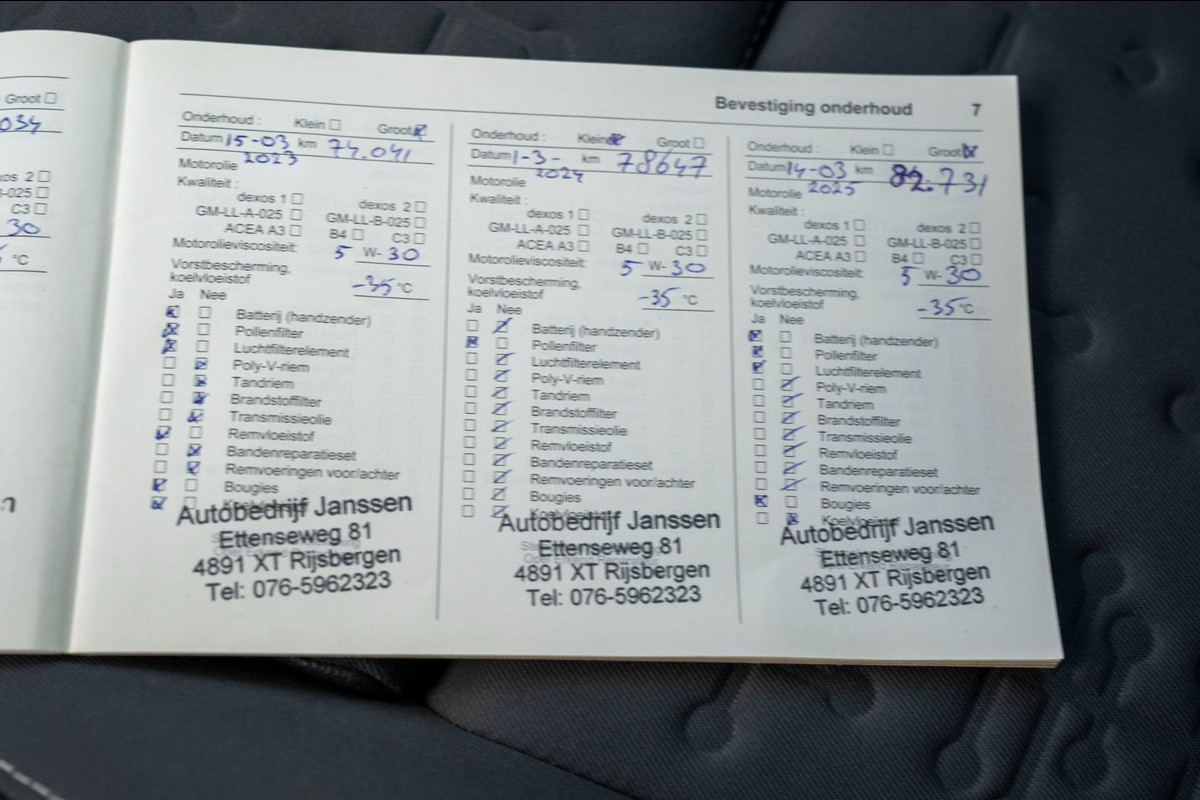 Groot
034
xos 2
B-025
C3
30
°C
Bevestiging onderhoud 7
Onderhoud : Klein Groot
Datum 15-03 2023 km 74.041
Motorolie
Kwaliteit :
dexos 1 dexos 2
GM-LL-A-025 GM-LL-B-025
ACEA A3 B4 C3
Motorolieviscositeit: 5 W- 30
Vorstbescherming,
koelvloeistof -35 °C
Ja Nee
Batterij (handzender)
Pollenfilter
Luchtfilterelement
Poly-V-riem
Tandriem
Brandstoffilter
Transmissieolie
Remvloeistof
Bandenreparatieset
Remvoeringen voor/achter
Bougies
Autobedrijf Janssen
Ettenseweg 81
4891 XT Rijsbergen
Tel: 076-5962323
Onderhoud : Klein Groot
Datum 1-3-2024 km 78647
Motorolie
Kwaliteit :
dexos 1 dexos 2
GM-LL-A-025 GM-LL-B-025
ACEA A3 B4 C3
Motorolieviscositeit: 5 W- 30
Vorstbescherming,
koelvloeistof -35 °C
Ja Nee
Batterij (handzender)
Pollenfilter
Luchtfilterelement
Poly-V-riem
Tandriem
Brandstoffilter
Transmissieolie
Remvloeistof
Bandenreparatieset
Remvoeringen voor/achter
Bougies
Koelvloeistof
Autobedrijf Janssen
Ettenseweg 81
4891 XT Rijsbergen
Tel: 076-5962323
Onderhoud : Klein Groot
Datum 14-03 2025 km 82.731
Motorolie
Kwaliteit :
dexos 1 dexos 2
GM-LL-A-025 GM-LL-B-025
ACEA A3 B4 C3
Motorolieviscositeit: 5 W- 30
Vorstbescherming,
koelvloeistof -35°C
Ja Nee
Batterij (handzender)
Pollenfilter
Luchtfilterelement
Poly-V-riem
Tandriem
Brandstoffilter
Transmissieolie
Remvloeistof
Bandenreparatieset
Remvoeringen voor/achter
Bougies
Koelvloeistof
Autobedrijf Janssen
Ettenseweg 81
4891 XT Rijsbergen
Tel: 076-5962323